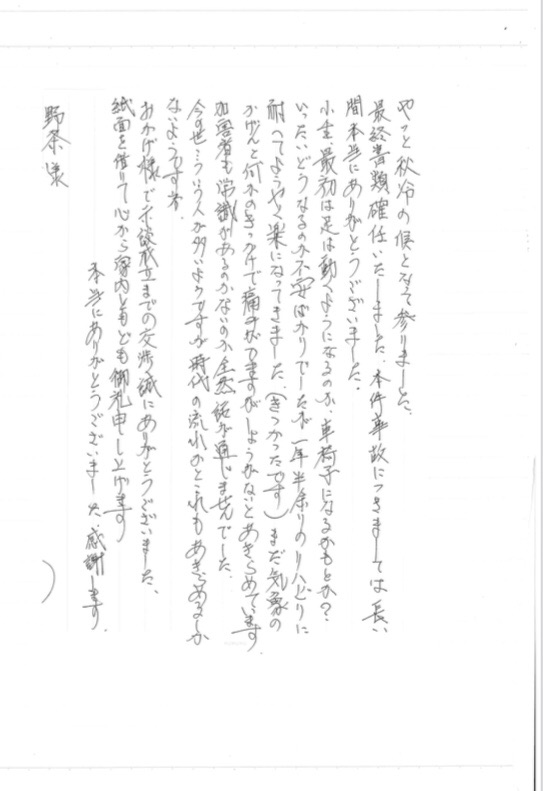 やっと秋冷の候となって参りました、
最終書類確任いたしました、本件事故につきましては長い
間本当にありがとうございました。
小生、最初は足は動くようになるのか、車椅子になるかもとか?
いったいどうなるのか不安ばかりでしたが、一年半余りのリハビリに
耐へてようやく楽になってきました、(きつかったです)まだ気象の
かげんと何かのきっかけで痛みがでますがしょうがないとあきらめています。
加害者も常識があるのかないのか全然話が通じませんでした。
今の世こういう人が多いようですが時代の流れかとこれもあきらめるしか
ないようですネ、
おかげ様で示談成立までの交渉誠にありがとうございました、
紙面を借りて心から家内ともども御礼申し上げます
本当にありがとうございました、感謝します。
野条 様